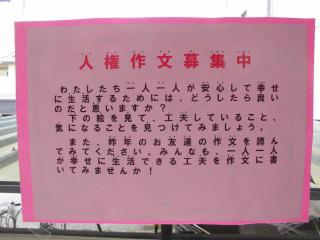 人権作文募集中
わたしたち一人一人が安心して幸せ
に生活するためには、どうしたら良い
のだと思いますか？
下の絵を見て、工夫していること、
気になることを見つけてみましょう。
また、昨年のお友達の作文を読ん
でみてください。みんなも、一人一人
が幸せに生活できる工夫を作文に書
いてみませんか！